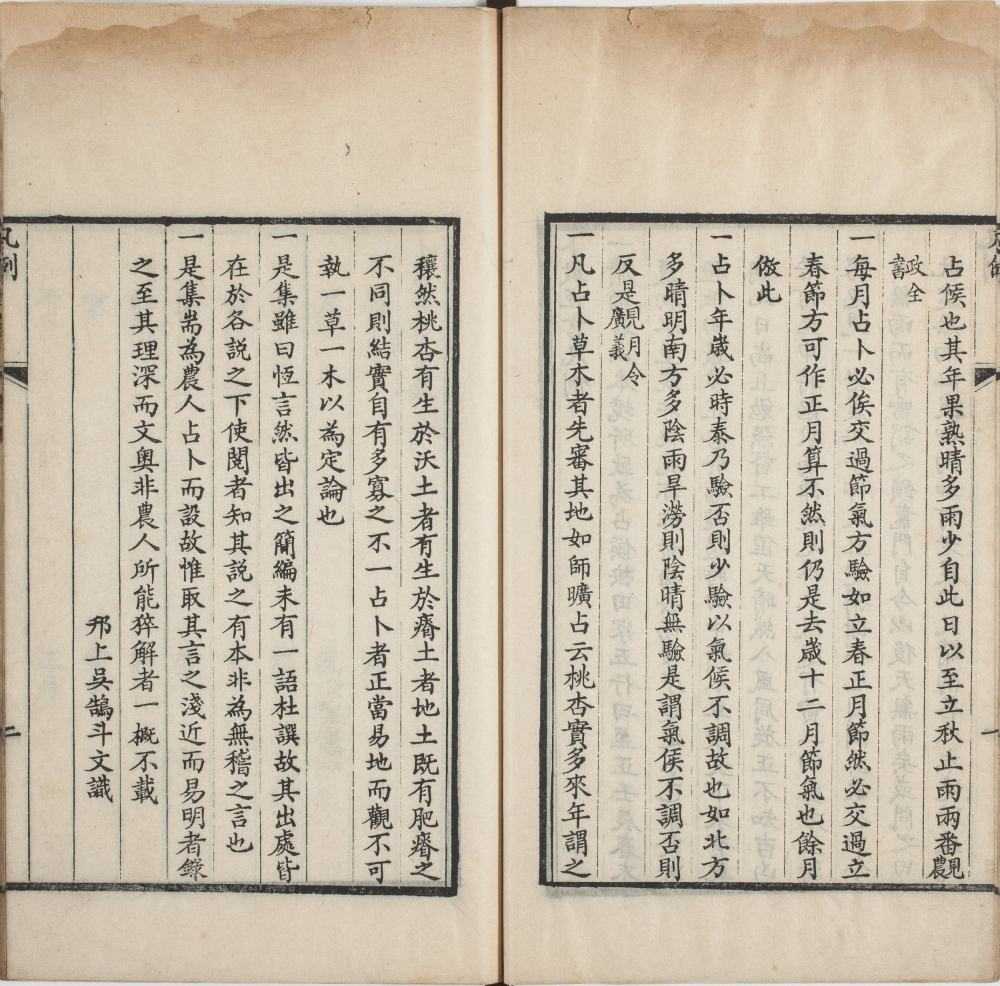 占候也其年果熟晴多雨少自此日以至立秋止雨兩番見農
政全書
一每月占卜必俟交過節氣方驗如立春正月節然必交過立
春節方可作正月算不然則仍是去歲十二月節氣也餘月
倣此
一占卜年歲必時泰乃驗否則少驗以氣候不調故也如北方
多晴明南方多陰雨旱澇則陰晴無驗是謂氣候不調否則
反是見月令廣義
一凡占卜草木者先審其地如師曠占云桃杏實多來年謂之
穰然桃杏有生於沃土者有生於瘠土者地土既有肥瘠之
不同則結實自有多寡之不一占卜者正當易地而觀不可
執一草一木以為定論也
一是集雖曰恆言然皆出之簡編未有一語杜譔故其出處皆
在於各說之下使閱者知其說之有本非為無稽之言也
一是集耑為農人占卜而設故惟取其言之淺近而易明者錄
之至其理深而文奧非農人所能猝解者一概不載
邗上吳鵠斗文識
凡例
二